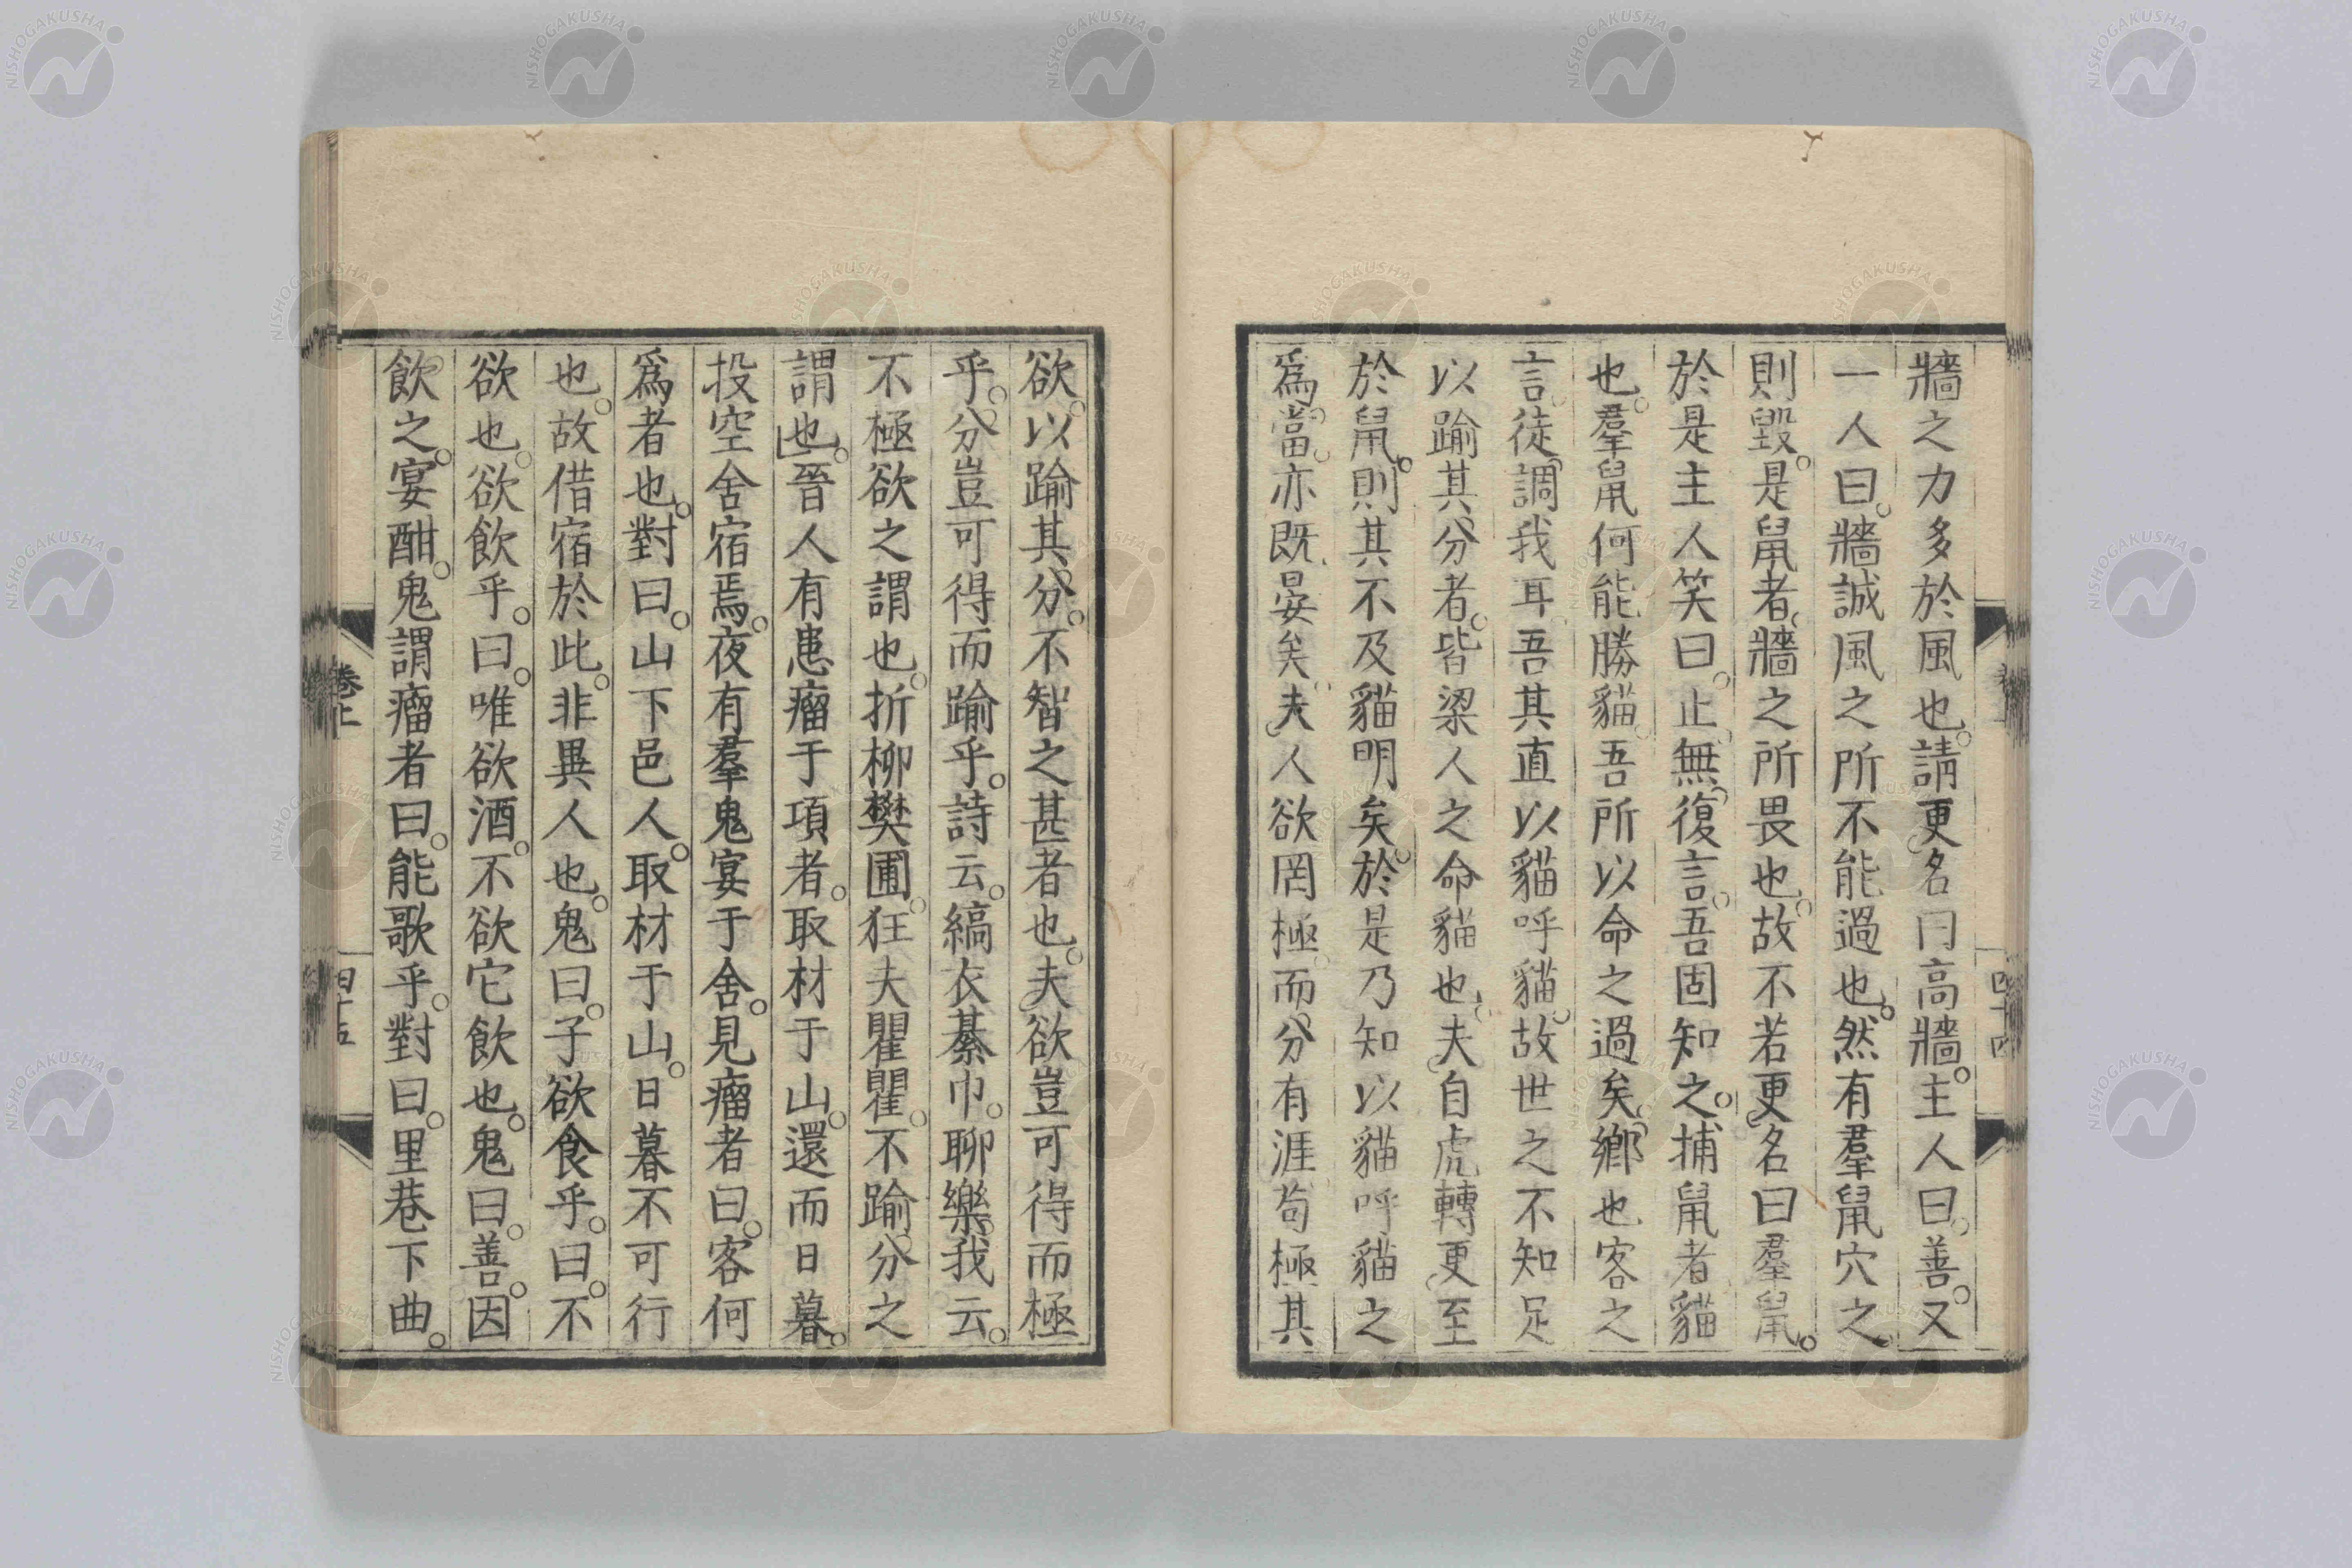 牆之力多於風也。請更名曰高牆。主人曰。善。又
一人曰。牆誠風之所不能過也。然有羣鼠穴之。
則毀。是鼠者。牆之所畏也。故不若更名曰羣鼠。
於是主人笑曰。止。無復言。吾固知之。捕鼠者貓
也。羣鼠何能勝貓。吾所以命之過矣。鄉也客之
言。徒調我耳。吾其直以貓呼貓。故世之不知足
以踰其分者。皆梁人之命貓也。夫自虎轉更至
於鼠。則其不及貓明矣。於是乃知以貓呼貓之
爲當。亦既晏矣。夫人欲罔極。而分有涯。苟極其
四十四
欲。以踰其分。不智之甚者也。夫欲豈可得而極
乎。分豈可得而踰乎。詩云。縞衣綦巾。聊樂我云。
不極欲之謂也。折柳樊圃。狂夫瞿瞿。不踰分之
謂也。」晉人有患瘤于項者。取材于山。還而日暮。
投空舍宿焉。夜有羣鬼宴于舍。見瘤者曰。客何
爲者也。對曰。山下邑人。取材于山。日暮不可行
也。故借宿於此。非異人也。鬼曰。子欲食乎。曰。不
欲也。欲飲乎。曰。唯欲酒。不欲它飲也。鬼曰。善。因
飲之。宴酣。鬼謂瘤者曰。能歌乎。對曰。里巷下曲。
卷上
四十五
NISHOGAKUSHA